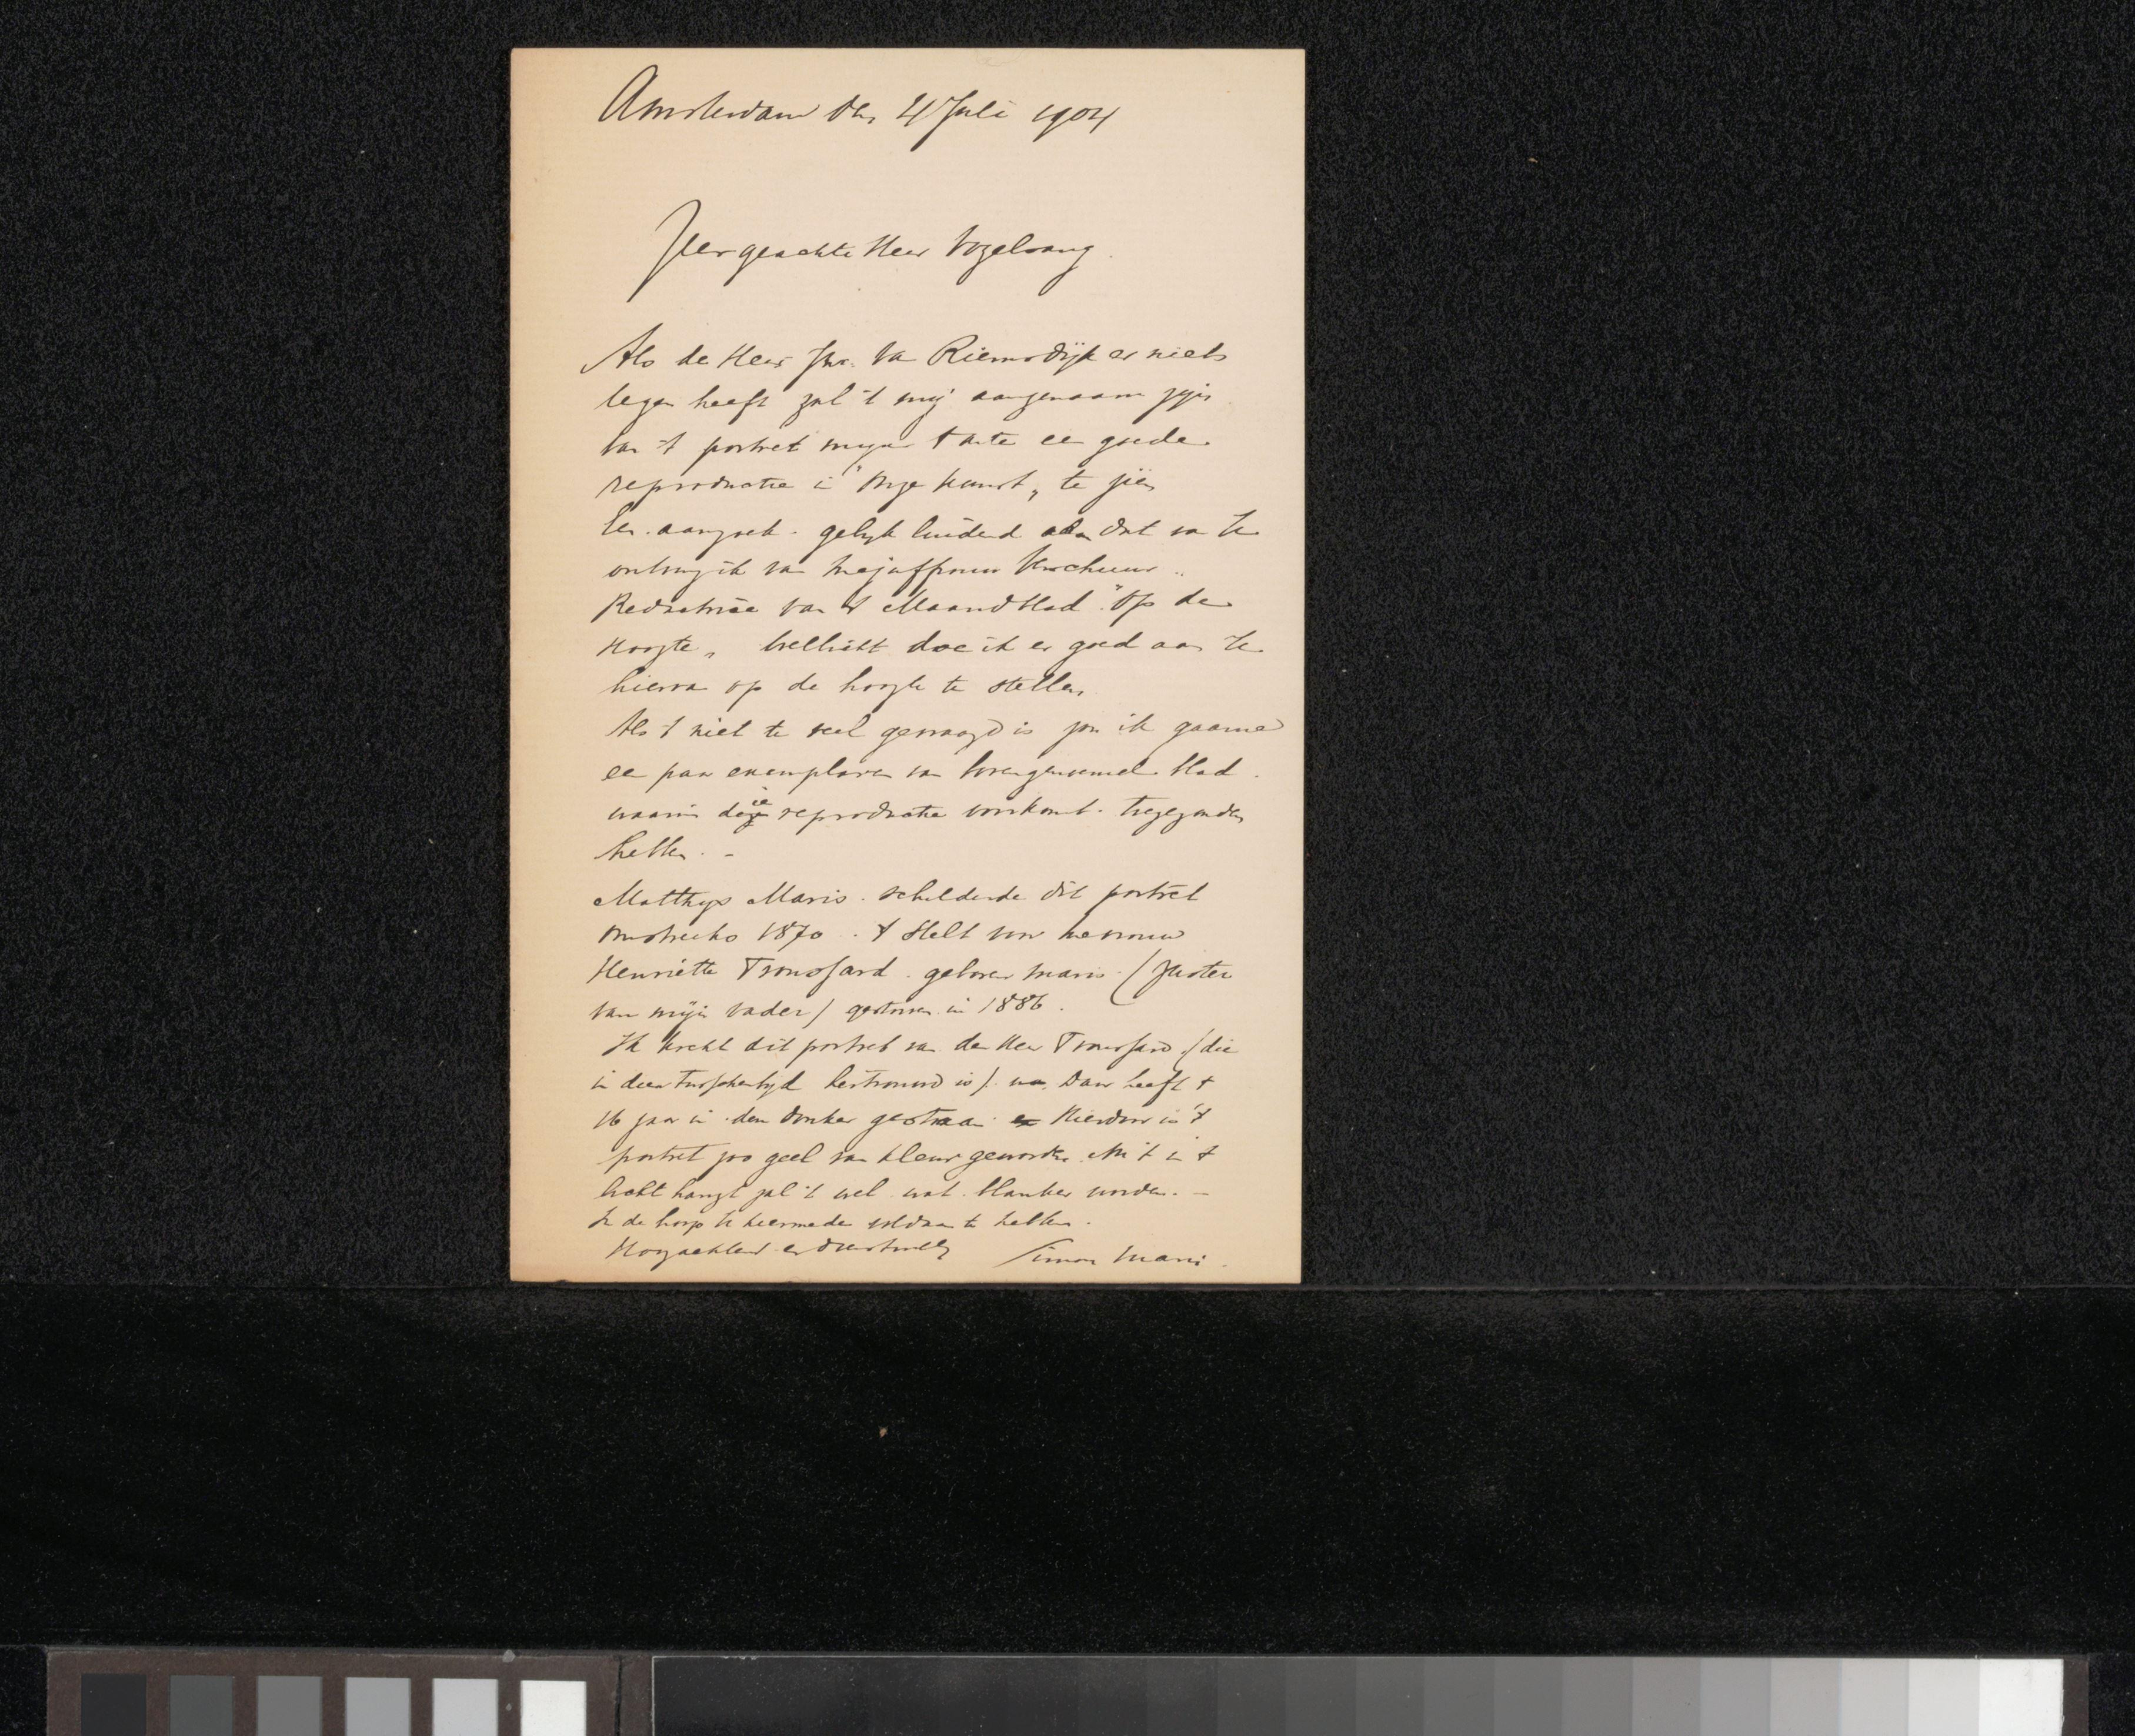 Amsterdam den 4 Juli 1904
Zeer geachte Heer Vogelsang.
Als de Heer Jhr. Van Riemsdijk er niets
tegen heeft zal 't mij aangenaam zijn
van 't portret mijner tante een goede
reproductie in "Onze Kunst" te zien
Een aanzoek gelijk luidend aan dat van U
ontving ik van Mejuffrouw
Redactrice van 't Maandblad "Op de
Hoogte" wellicht doe ik er goed aan U
hiervan op de hoogte te stellen
Als 't niet te veel gevraagd is zou ik gaarne
een paar exemplaren van bovengenoemd blad
waarin die reproductie voorkomt toegezonden
hebben. -
Matthijs Maris schilderde dit portret
omstreeks 1870. 't stelt voor mevrouw
Henriëtte Tronsfard geboren Maris (zuster
van mijn vader) gestorven in 1886.
Ik kocht dit portret van den Heer Tronsfard (die
in dien tusschentijd hertrouwd is). Daar heeft 't
16 jaar in den donker gestaan Hierdoor is 't
portret zoo geel van kleur geworden. Nu 't in 't
licht hangt zal 't wel wat blanker worden. -
In de hoop U hiermede voldaan te hebben.
Hoogachtend en
Simon Maris.